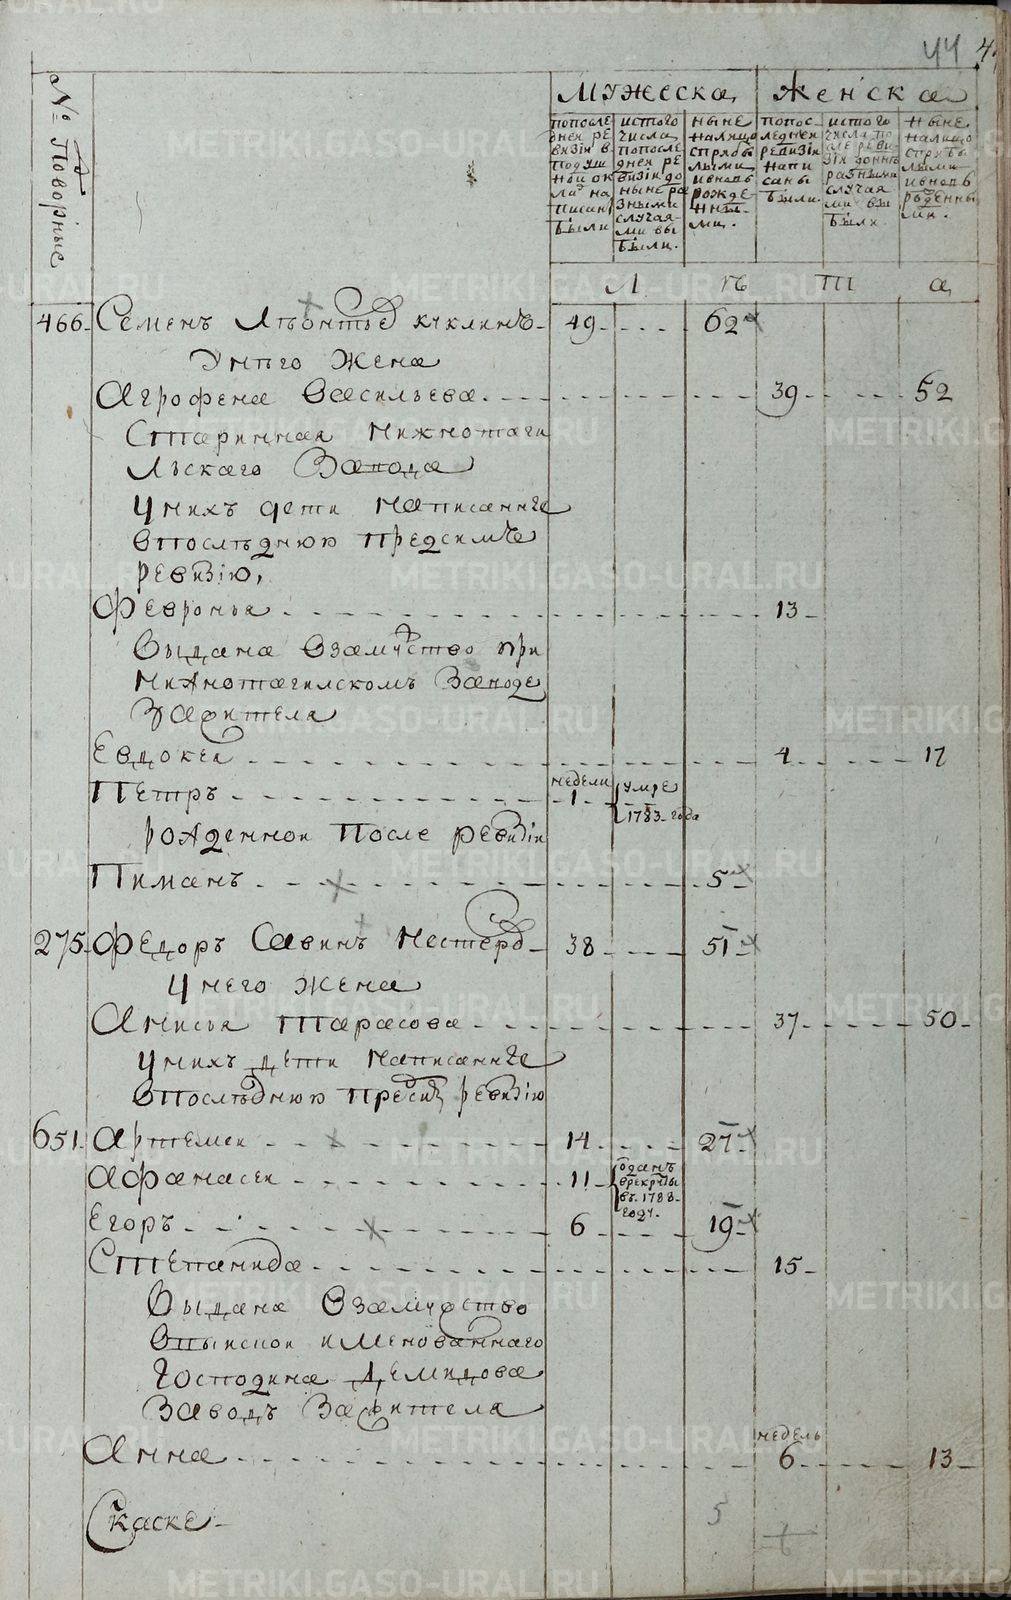 44
№ Подворные
Мужеска
Женска
пополе
днея ре
визіи в
подуш
ной ок
лад на
писан
были
истого
числа
пополе
днея ре
визіи до
ныне ра
зными
случая
ми вы
были.
ныне
налицо
сприбы
лыми
ивновь
рожде
нны
ми.
попос
ледней
ревизіи
напи
саны
были.
истого
числа по
сле реви
зіи доныне
разными
случая
ми вы
были
Ныне
налицо
сприбы
лыми
ивновь
рожденны
ми.
Л ѣ т а
466. Семенъ Лѣонтьев куклинъ 49 62
Унего жена
Агрофена Васильева. 39 52
Старинная нижнотаги
льскаго Завода
Унихъ дети написанные
впоследнюю предсимъ
ревизію,
Февронья 13
Выдана взамуство при
нижнотагилскомъ заводе
Зажителя
Евдокея 4 17
Петръ недели 1 умре 1783 года
рожденной после ревизіи
Пиманъ 5
275. Федоръ Савинъ Нестеров 38 51
Унего жена
Анисья Тарасова 37 50
Унихъ дети написанные
впоследнюю предсимъ ревизію
651. Артемеи 14 27
Афанасеи 11 Отданъ врекруты въ 1788 году.
Егоръ 6 19
Степанида 15
Выдана взамуство
впыискои именованнаго
Господина Демидова
Заводъ Зажителя
Анна недель 6 13
Скаске
5
METRIKI.GASO-URAL.RU